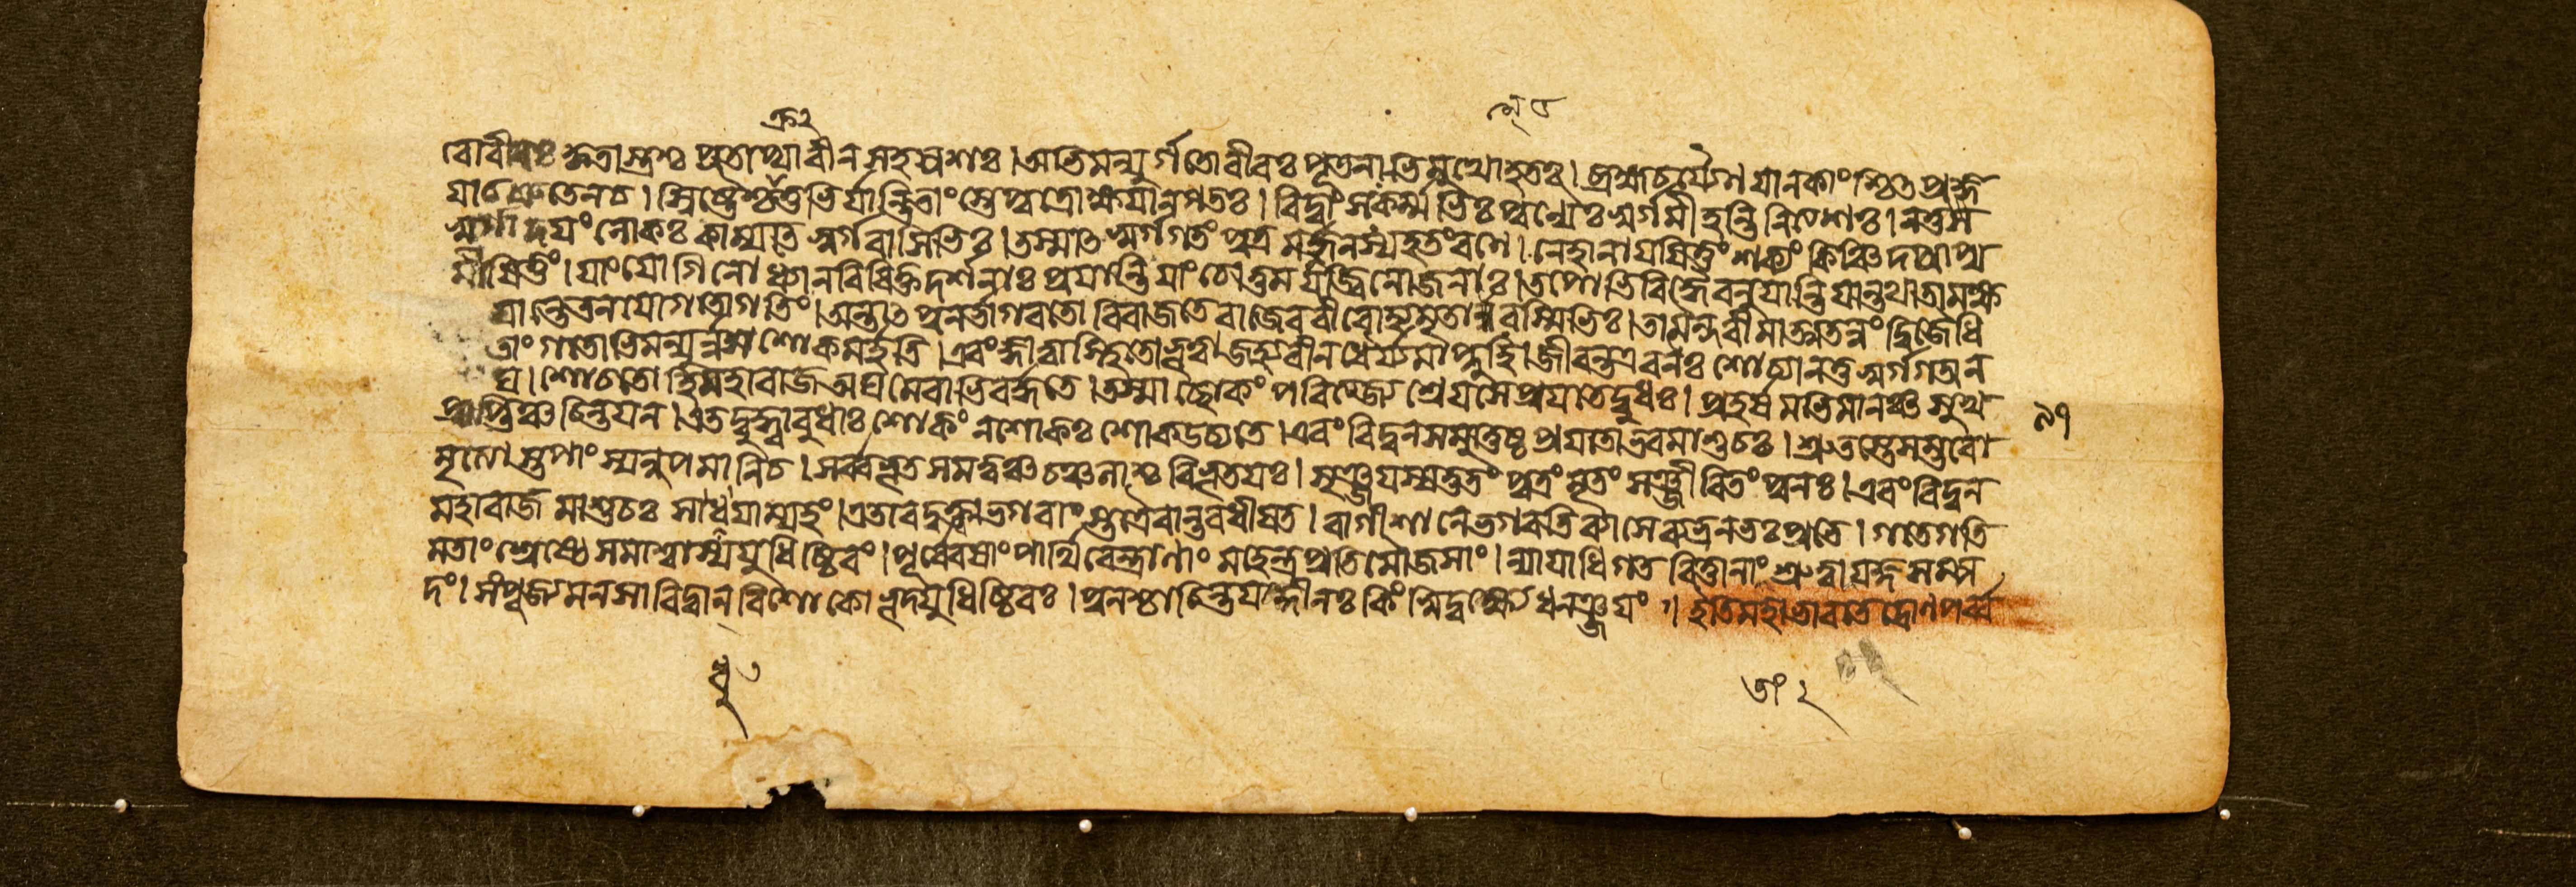 রোবীরঃ ক্ষতাস্ত্রশঃ পুরোস্থাবীন সহস্রশঃ। অভিমন্যুর্গতোবীরঃ পৃতনাভিমুখোহতঃ। ব্রহ্মচর্যেণ যানকাংশ্চিৎ প্রজ্ঞ
যাচশ্রুতেনচ। ইষ্টৈশ্চক্রতুভির্যান্তি তাংস্তেপুত্রোক্ষয়ানগতঃ। বিদ্বাংসঃকর্ম্মভিঃ পুণ্যৈঃ স্বর্গমীহন্তি নিত্যশঃ। নতুস
স্বর্গাদয়ং লোকঃ কাম্যতে স্বর্গবাসিভিঃ। তস্মাৎ স্বর্গগতং পুত্র মর্জুনস্যহতংরণে। নেহানায়য়িতুং শক্যং কিঞ্চিদপ্রাপ্য
মীপ্সিতং। যাংযোগিনো ধ্যানবিবিক্তদর্শনাঃ প্রয়ান্তি যাং চোত্তমযজ্বিনোজনাঃ। তপোভিরিদ্ধৈরনুযান্তি যান্তথা তামক্ষ
য়ান্তেতনয়োগতোগতিং। অন্তাৎ পুনর্ভাগবতো বিরাজতে রাজেববীরোহ্যমৃতাত্মরশ্মিভিঃ। তামৈন্দবীমাত্মতনুং দ্বিজোচি
তাংগতোভিমন্যুর্নস শোকমর্হতি। এবংজ্ঞাত্বাস্থিরোভূত্বা জহ্যরীনধৈর্যমাপ্নুহি। জীবন্তএবনঃ শোচ্যানতু স্বর্গগতান
ঘ। শোচতো হিমহারাজ অঘমেবাভিবর্দ্ধতে। তস্মাচ্ছোকং পরিত্যজ্য শ্রেয়সেপ্রয়তেদ্বুধঃ। প্রহর্ষমভিমানঞ্চ সুখ
প্রাপ্তিঞ্চ চিন্তয়ন। এতদ্বুদ্ধ্বাবুধাঃ শোকং নশোকঃ শোকউচ্যতে। এবং বিদ্বনসমুত্তিষ্ঠ প্রয়তোভবমাশুচঃ। শ্রুতস্তেসম্ভবো
মৃত্যো স্তপাংস্যনুপমানিচ। সর্ব্বভূতসমত্বঞ্চ চঞ্চলাশ্চ বিভূতয়ঃ। সৃঞ্জয়স্যতুতং পুত্রং মৃতং সঞ্জীবিতং পুনঃ। এবংবিদ্বন
মহারাজ মাশুচঃ সাধয়াম্যহং। এতাবদুক্ত্বাভগবাং স্তত্রৈবান্তরধীয়ত। বাগীশানেভগবতি ব্যাসেব্যভ্রনভঃপ্রভে। গতেমতি
মতাংশ্রেষ্ঠে সমাশ্বাস্যযুধিষ্ঠিরং। পূর্ব্বেষাং পার্থিবেন্দ্রাণাং মহেন্দ্রপ্রতিমৌজসাং। ন্যায়াধিগত বিত্তানাং শ্রুত্বাযজ্ঞসম্প
দং। সংপূজ্যমনসাবিদ্বান্ বিশোকোভূদযুধিষ্ঠিরঃ। পুনশ্চাচিন্তয়দ্দীনঃ কিংস্বিদ্বক্ষ্যেধনঞ্জয়ং। ইতিমহাভারতে দ্রোণপর্ব্ব